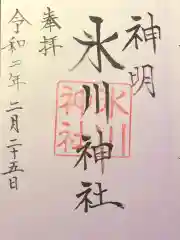 神明
氷川神社
奉拝
令和二年二月二十五日
氷川
神社